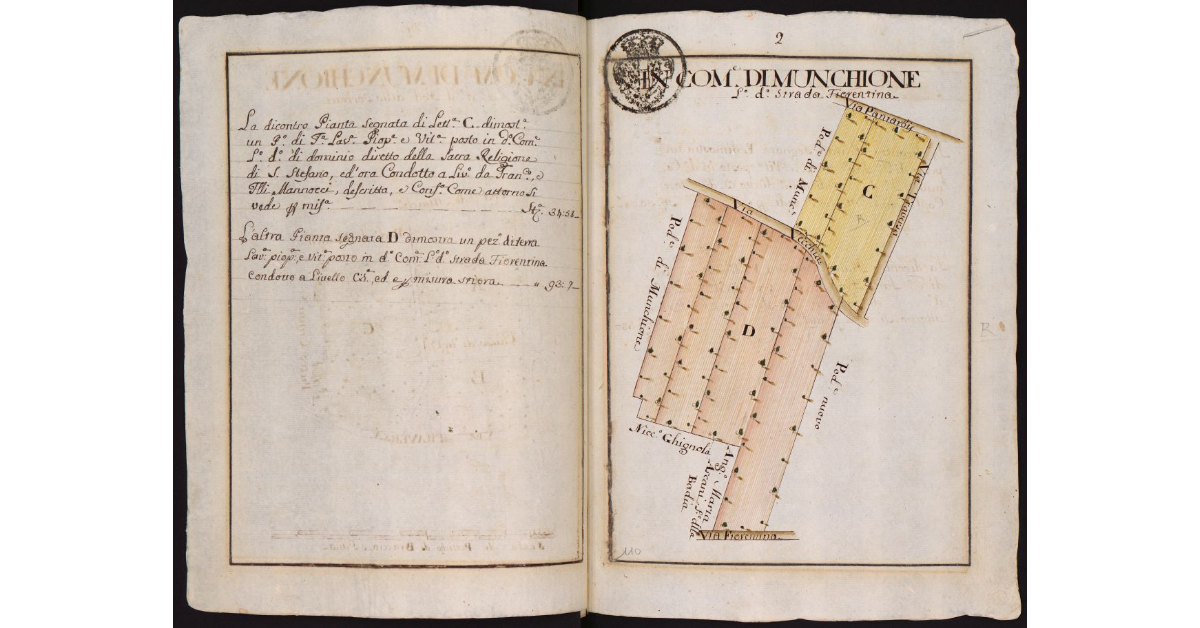 La dicontro Pianta segnata di Lett.ª C. dimost.ª
un P.º di T.ª Lav.ª Piop.ª e Vit.ª posto in d.º Com.º
L.º d.º di dominio diretto della Sacra Religione
di S. Stefano, ed'ora Condotto a Liv.º da Fran.º, e
Mannocci, descritta, e Conf.ª Come attorno si
vede mis.ª St.ª 34:51
L'altra Pianta segnata D dimostra un pez.º di terra
Lav.ª piop.ª e Vit.ª posto in d.º Com.º L.º d.º Strada Fiorentina
Condotto a Livello ed e misura stiora " 93:7
2
IN COM.E DI MUNCHIONE
L.º d.º Strada Fiorentina
Via
Pod.e di Munc.e
C
Via Traversa
Via
Vecchia
Pod.e di Munchione
D
Pod.e nuovo
Nicc.º Ghignola
Ang.º Maria
Badia
Via Fiorentina
110
B